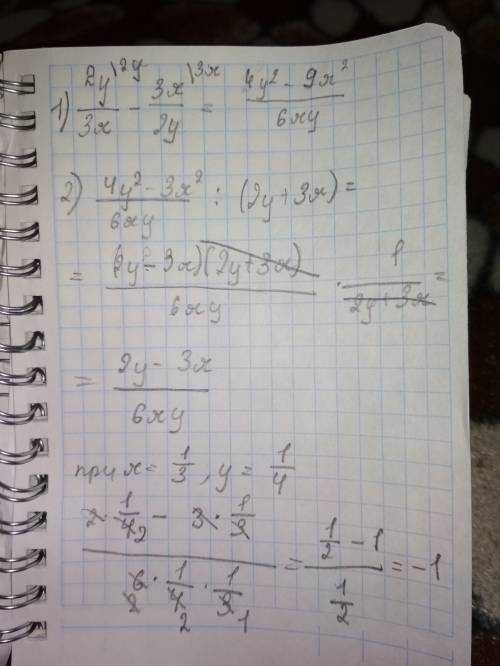 1) 2y\2y / 3x − 3x\3x / 2y = 4y² − 9x² / 6xy
2) 4y² − 3x² / 6xy : (2y + 3x) =
= (2y − 3x)(2y + 3x) / 6xy · 1 / 2y + 3x =
= 2y − 3x / 6xy
при x = 1/3, y = 1/4
2 · 1/4 2 − 3 · 1/3 / 6 2 · 1/4 2 · 1/3 1 = 1/2 − 1 / 1/2 = −1